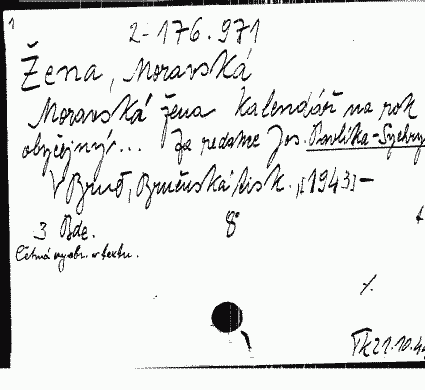 1
2-176.971
Žena, Moravská
Moravská žena Kalendář na rok
obyčejný... Za redakce Jos. Pavlíka-
V Brně, Brněnská tisk., [1943]-
3 Bde. 8°
Četná vyobr. v textu.
%
21.10.